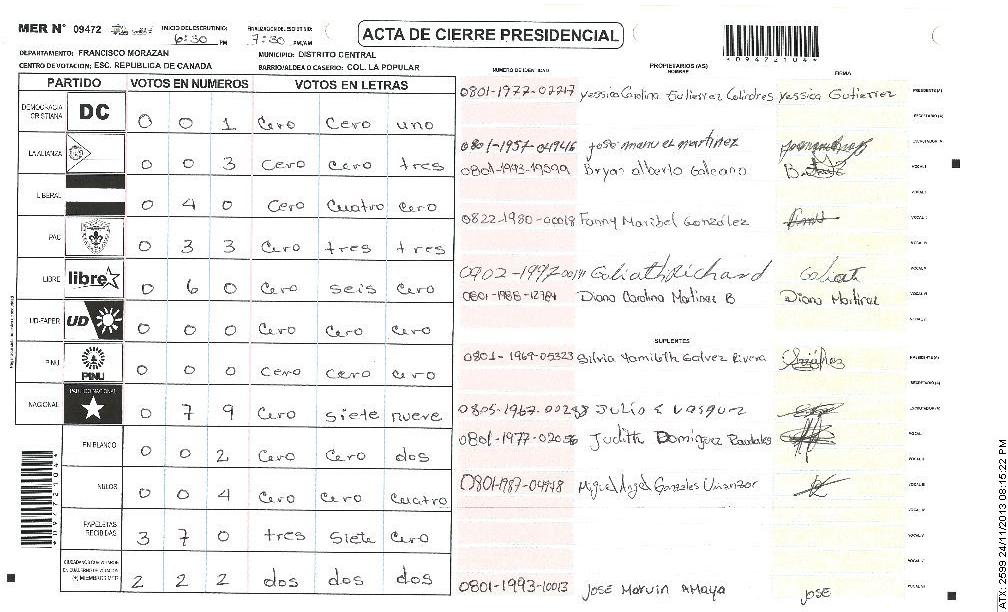 MER N° 09472 INICIO DEL ESCRUTINIO: 6:30 PM FINALIZACION DEL ESCRUTINIO: 7:30 PM/AM
ACTA DE CIERRE PRESIDENCIAL
*09472104*
DEPARTAMENTO: FRANCISCO MORAZAN MUNICIPIO: DISTRITO CENTRAL
CENTRO DE VOTACION: ESC. REPUBLICA DE CANADA BARRIO/ALDEA O CASERIO: COL. LA POPULAR
PARTIDO VOTOS EN NUMEROS VOTOS EN LETRAS
DEMOCRACIA CRISTIANA DC 0 0 1 Cero Cero uno
LA ALIANZA 0 0 3 Cero cero tres
LIBERAL 0 4 0 Cero Cuatro Cero
PAC 0 3 3 Cero tres tres
LIBRE libre 0 6 0 Cero seis Cero
UD-FAPER UD 0 0 0 Cero Cero Cero
PINU PINU 0 0 0 Cero cero Cero
NACIONAL PARTIDO NACIONAL 0 7 9 Cero siete nueve
EN BLANCO 0 0 2 Cero Cero dos
NULOS 0 0 4 Cero cero cuatro
PAPELETAS RECIBIDAS 3 7 0 tres siete cero
2 2 2 dos dos dos
*09472104*
NUMERO DE IDENTIDAD PROPIETARIOS (AS) NOMBRE FIRMA
Yessica Carolina Gutierrez Yessica Gutierrez PRESIDENTE(A)
SECRETARIO(A)
0801-1957-04946 jose manuel martinez ESCRUTADOR(A)
0801-1993-19599 Bryan alberto Galeano VOCAL I
0822-1980-00018 Fanny Maribel González
Goliath Richard Goliat
0801-1988-12784 Diana Carolina Martinez B Diana Martinez
SUPLENTES
0801-1969-05323 Silvia Yamileth Galvez Rivera PRESIDENTE(A)
SECRETARIO(A)
Julio E Vasquez ESCRUTADOR(A)
Judith Dominguez
0801-1987-04948 Miguel Angel Gonzales
0801-1993-10013 JOSE Marvin AMaya JOSE
ATX: 2599 24/11/2013 08:15:22 PM